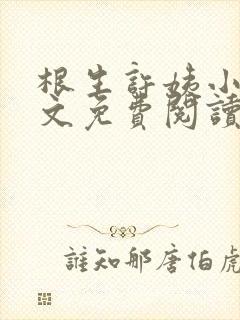 根生許姨小
文免費閱讀
誰知那唐伯虎